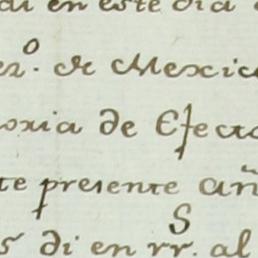 di en este dia
er.º de Mexic
oria de Efecto
te presente añ
s di en rr.S al